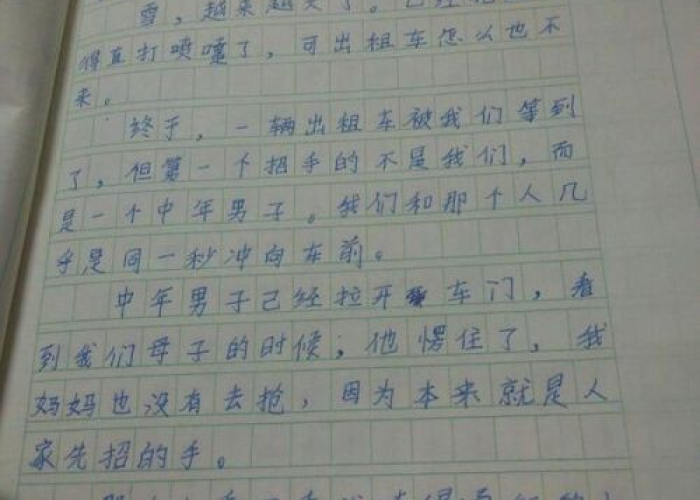 雪，越来越大了。已经
得直打喷嚏了，可出租车怎么也不
来。
终于，一辆出租车被我们等到
了，但第一个招手的不是我们，而
是一个中年男子。我们和那个人几
乎是同一秒冲向车前。
中年男子已经拉开车门，看
到我们母子的时候；他愣住了，我
妈妈也没有去抢，因为本来就是人
家先招的手。